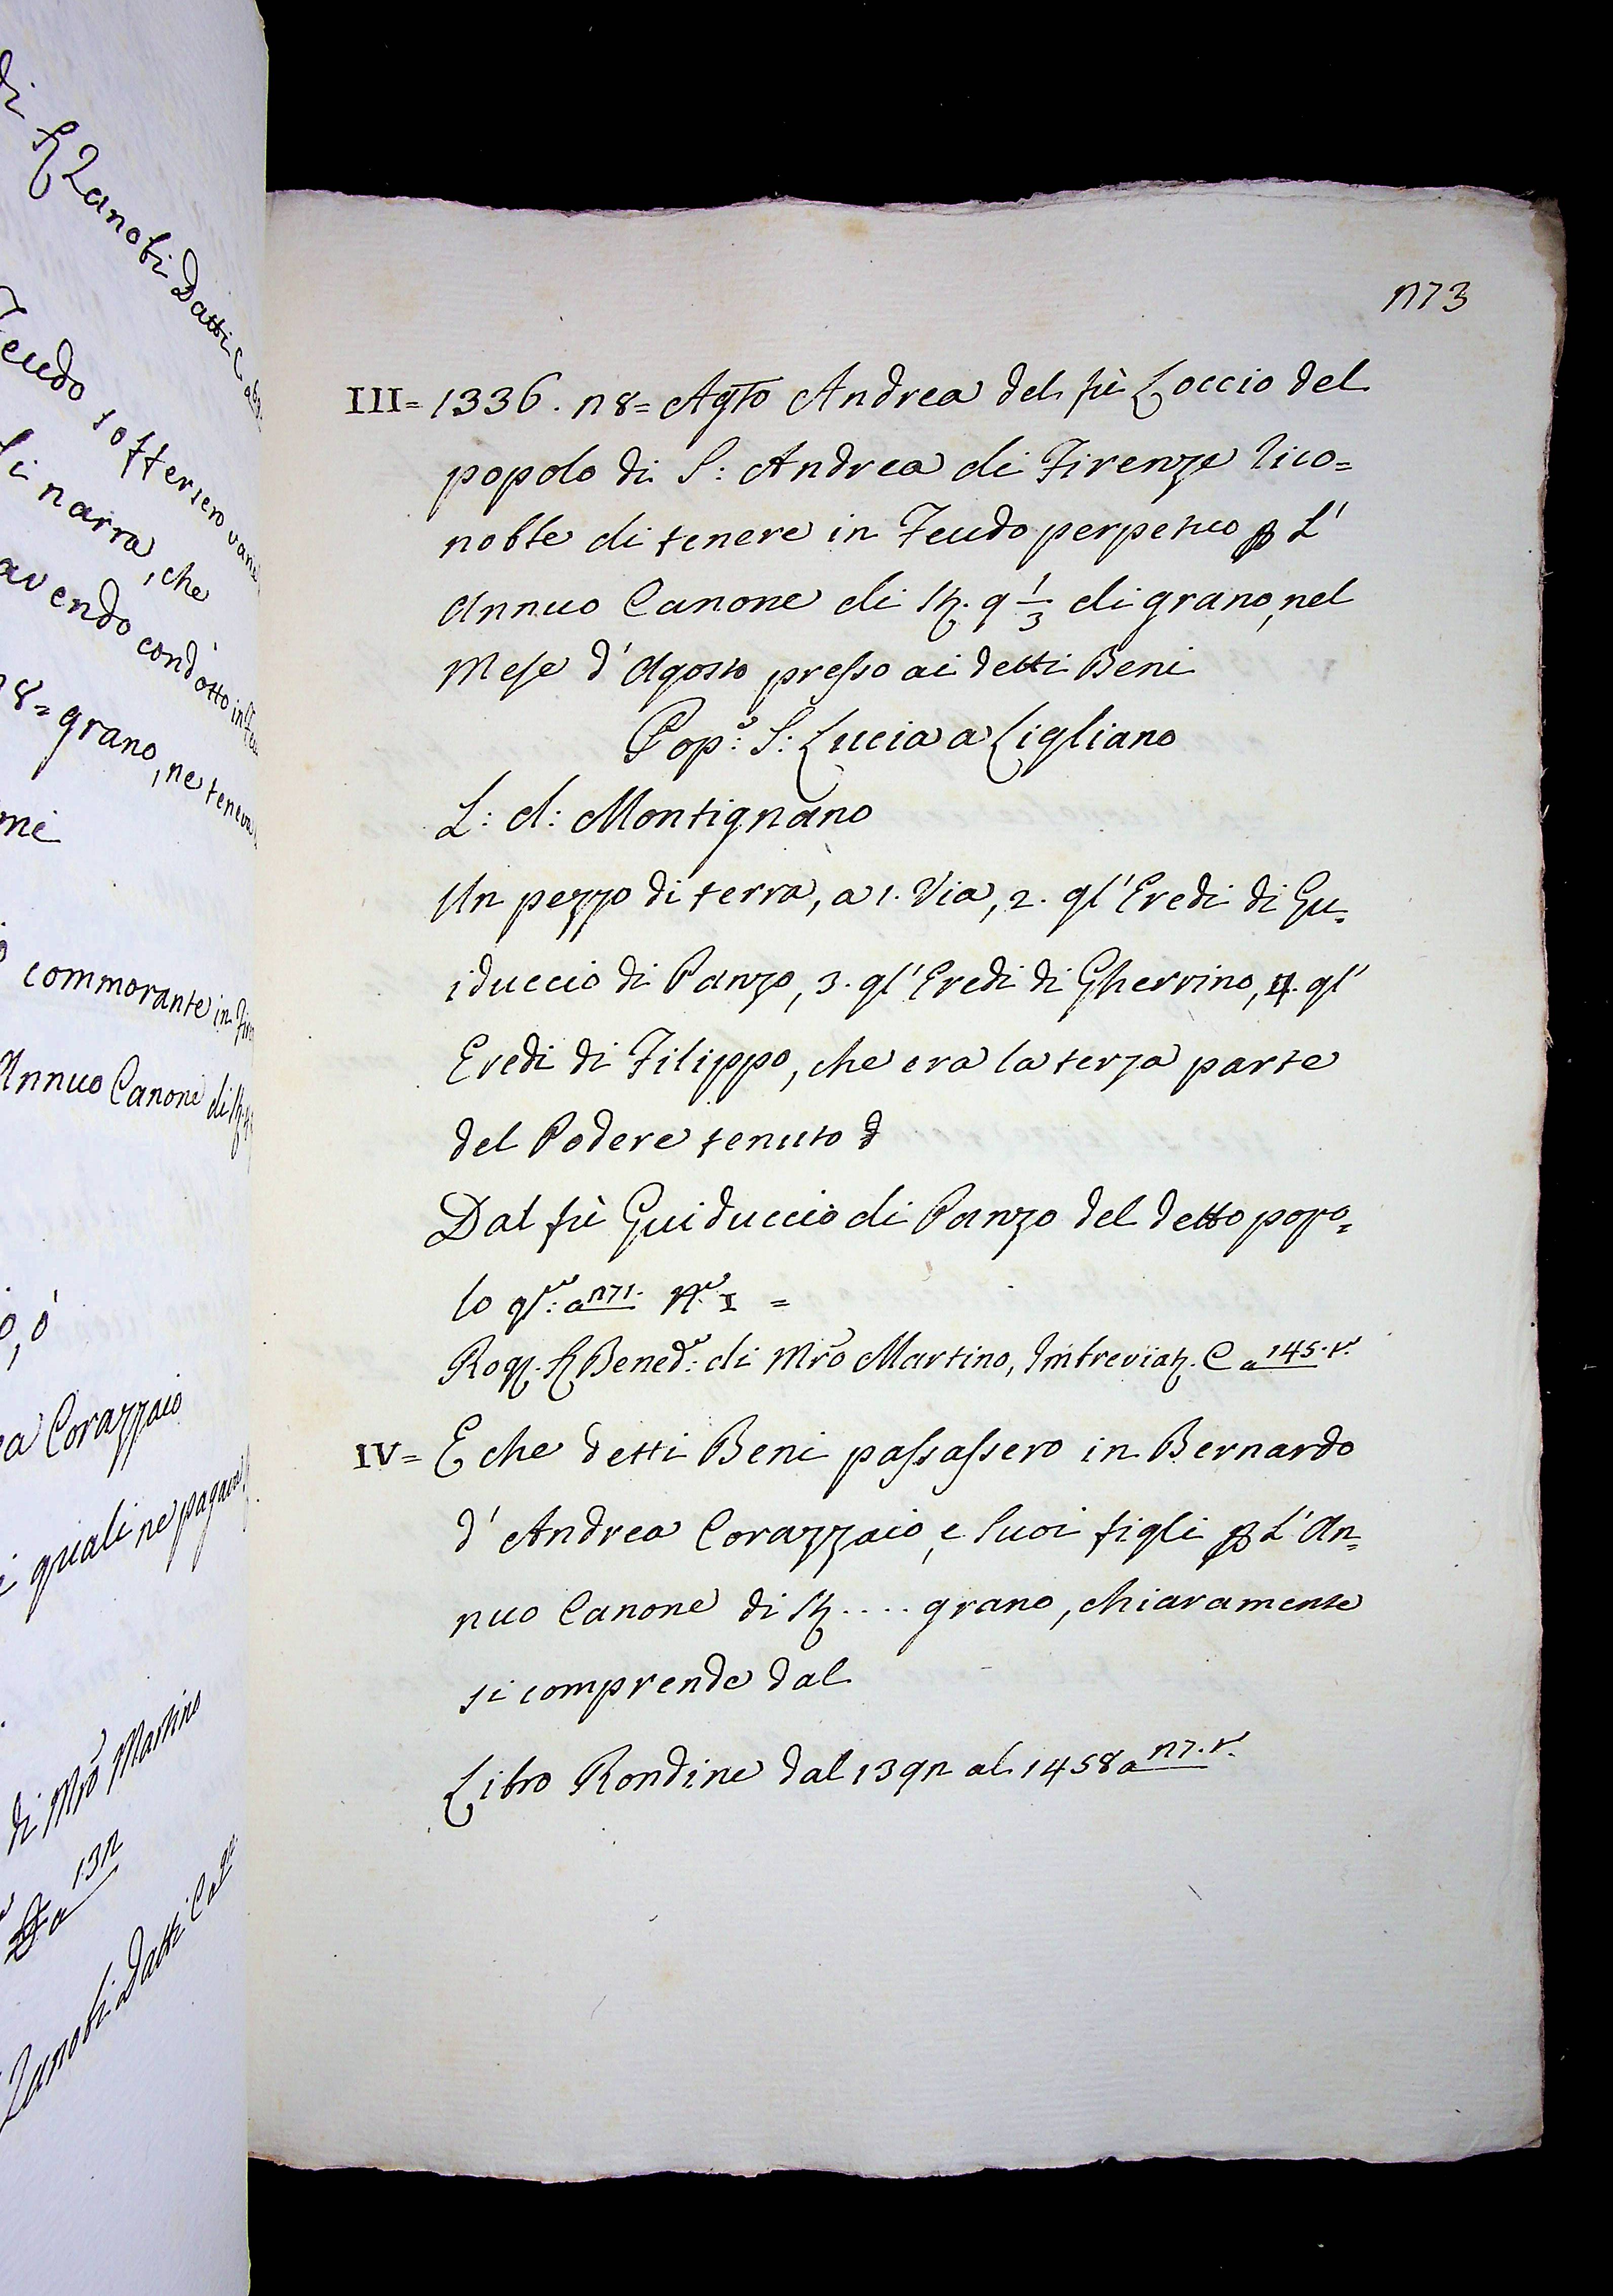 di Sr Zanobi Datti C a
Feudo soffersero varie
si narra, che
avendo condotto in
28= grano, ne teneva
me
commorante in Fire
Annuo Canone di St
o, ó
a Corazzaio
i quali ne pagava
di Mro Martino
a 132
Zanobi Datti C a
273
III= 1336. 28= Agto Andrea del fù Loccio del
popolo di S: Andrea di Firenze rico=
nobbe di tenere in Feudo perpetuo p L'
Annuo Canone di St. 9 1/3 di grano, nel
Mese d'Agosto presso ai detti Beni
Pop:o S: Lucia a Ligliano
L: d: Montignano
Un pezzo di terra, a 1. Via, 2. gl'Eredi di Gu=
iduccio di Panzo, 3. gl'Eredi di Gherrino, 4. gl'
Eredi di Filippo, che era la terza parte
del Podere tenuto d
Dal fù Guiduccio di Panzo del detto popo=
lo qs:o a 271. No I =
Rog. Sr Bened:o di Mro Martino, Imbreviat. C a 145.t.
IV= E che detti Beni passassero in Bernardo
d'Andrea Corazzaio, e suoi figli p L'An=
nuo Canone di St.... grano, chiaramente
si comprende dal
Libro Rondine dal 1392 al 1458 a 27.t.